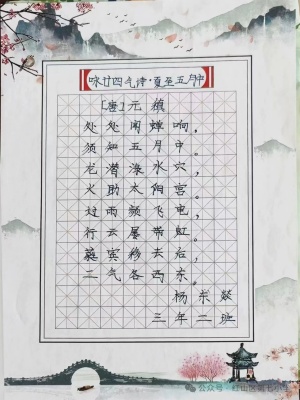 咏廿四气诗·夏至五月中
[唐]元稹
处处闻蝉响，
须知五月中。
龙潜渌水穴，
火助太阳宫。
过雨频飞电，
行云屡带虹。
蕤宾移去后，
二气各西东。
三年二班
公众号